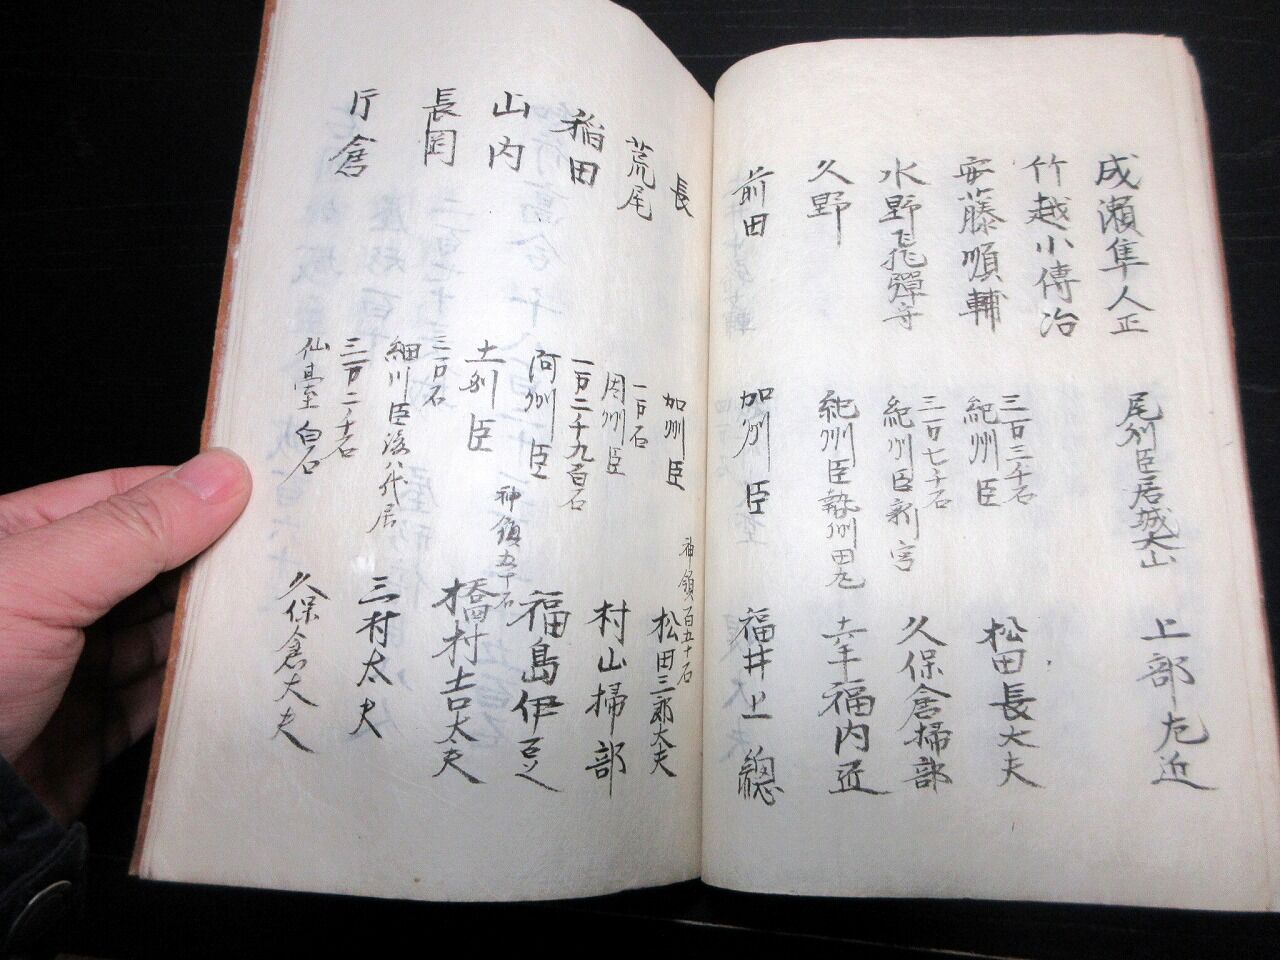 成瀬隼人正 尾州臣居城犬山 上部左近
竹越小傳治
安藤順輔 三万三千石 紀州臣 松田長大夫
水野飛彈守 三万七千石 紀州臣新宮 久保倉掃部
久野 紀州臣勢州田丸 福内匠
前田 加州臣 福井上總
長 加州臣 神領百五十石 松田三郎大夫
荒尾 一万石 因州臣 村山掃部
稲田 一万二千九百石 阿州臣 福島伊豆
山内 土州臣 神領五十石 橋村吉大夫
長岡 三万石 細川臣 八代居 三村太夫
片倉 三万二千石 仙臺白石 久保倉大夫